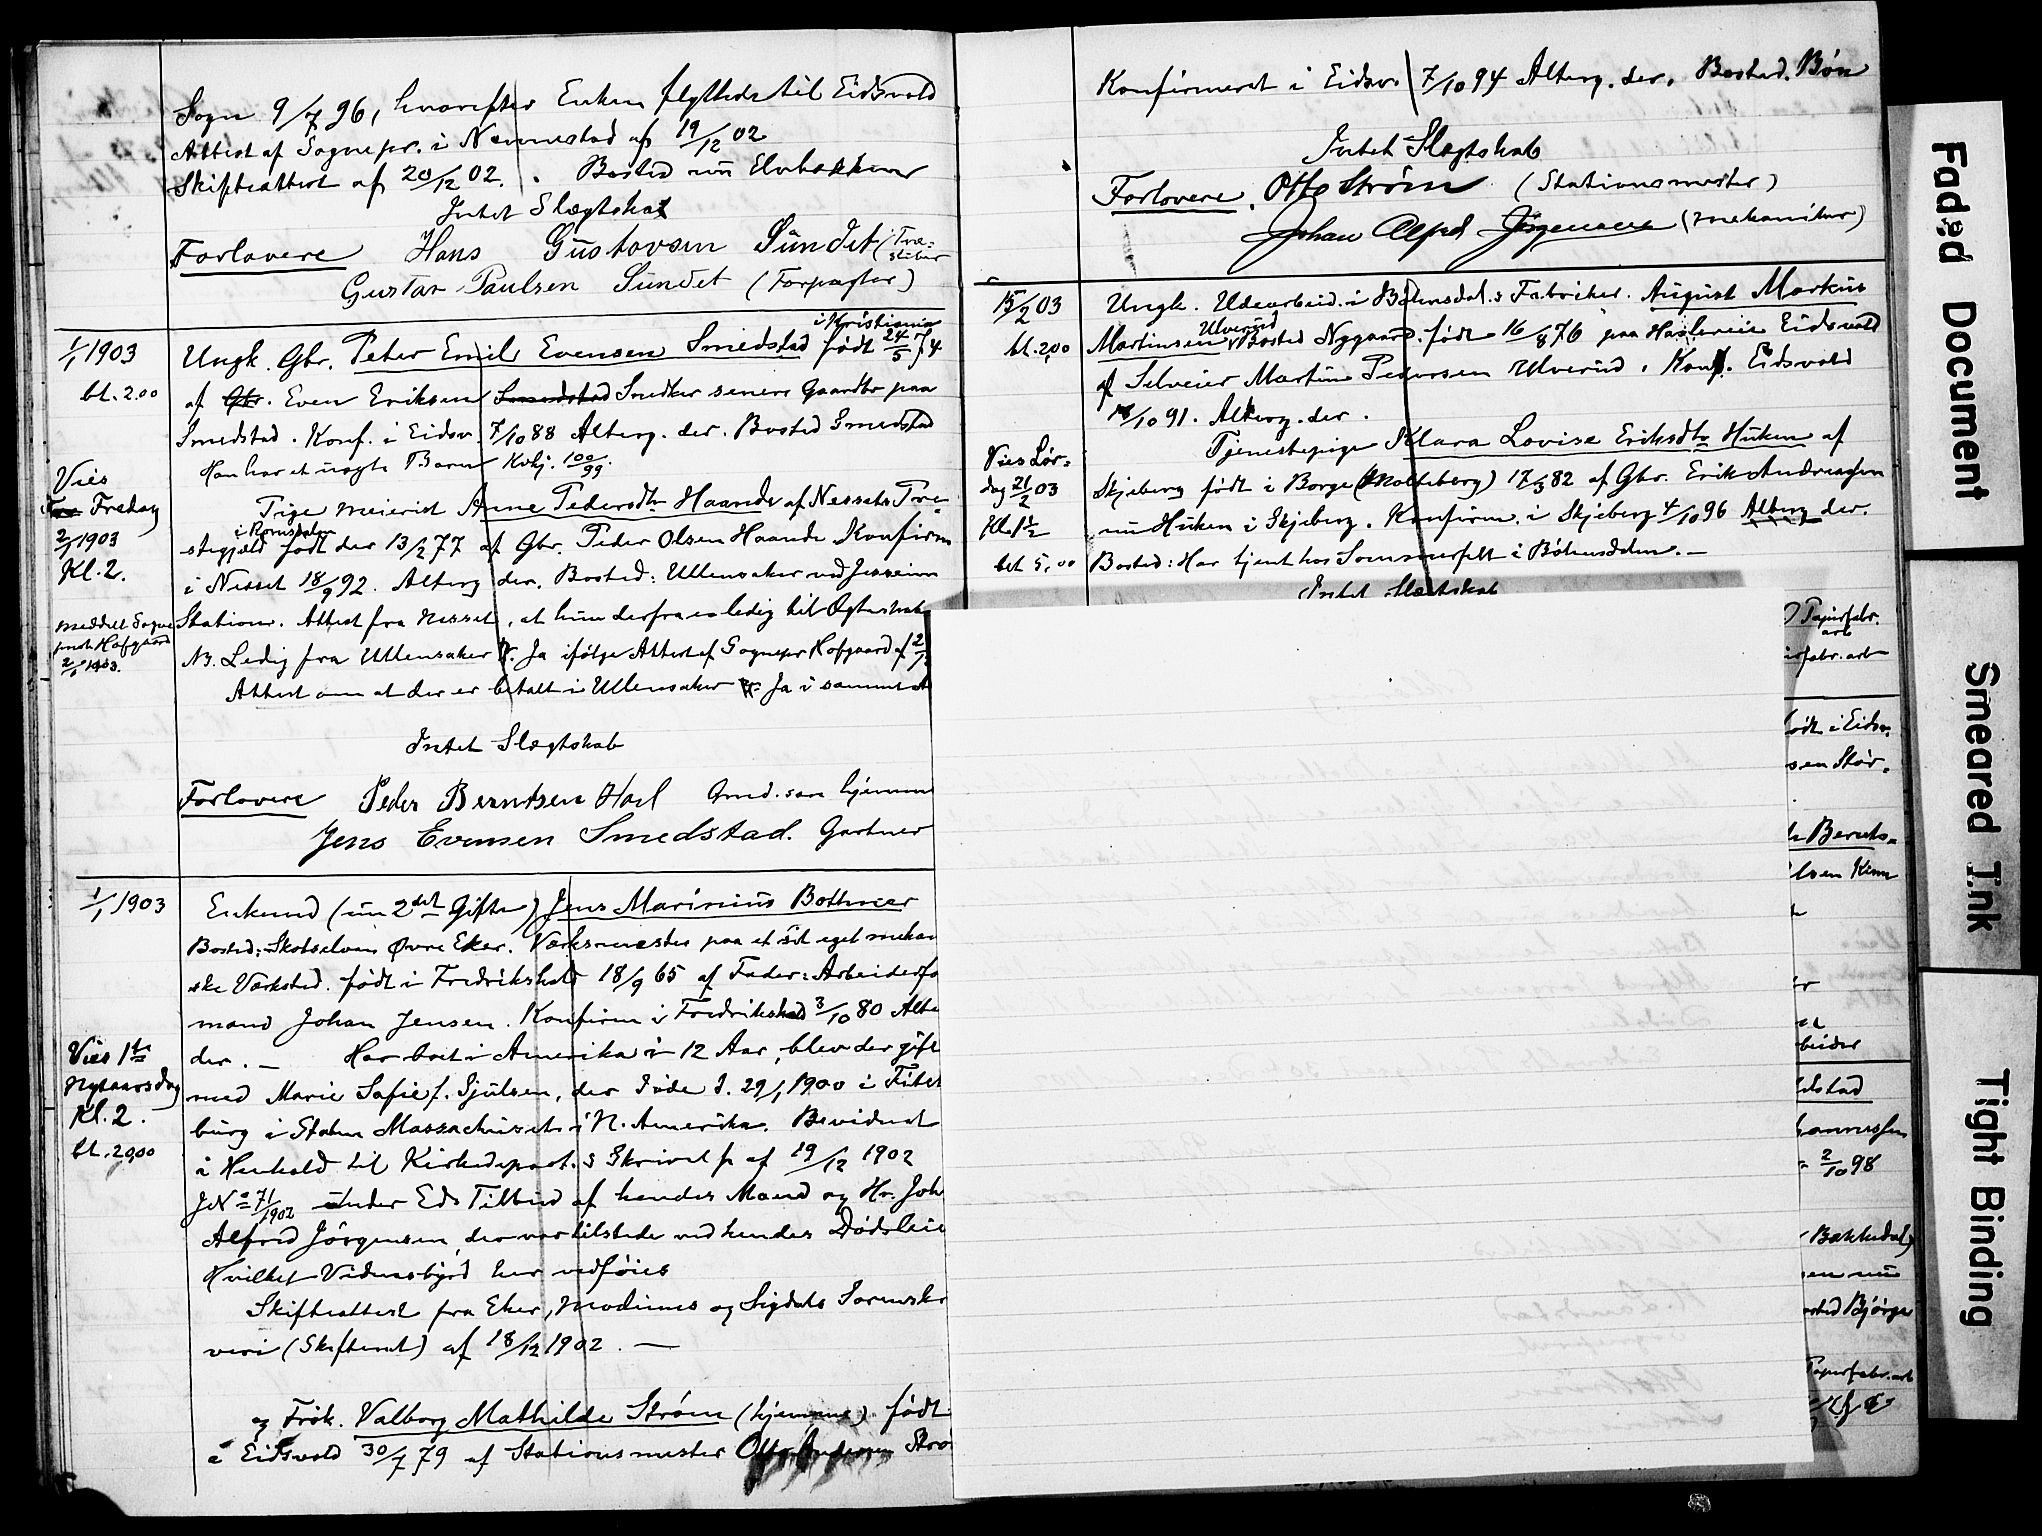 Sogn 9/7 96, hvorefter Enken flyttede til Eidsvold
Attest af Sognepr. i Nannestad af 19/12 02
Skifteattest af 20/12 02. Bosted
Intet Slægtskab
Forlovere Hans Gustavsen Sundet
Gustav Paulsen Sundet (Forpagter)
1/1 1903
bt. 2.00
i Kristiania
Ungk. Gbr. Peter Emil Evensen Smedstad født 24/5 74
af Gbr. Even Eriksen Smedstad Snedker senere Gaardbr paa
Smedstad. Konf. i Eidsv. 7/10 88 Alterg. der. Bosted Smedstad
Han har et uægte Barn Kvlj. 100/99.
Vies
Fredag
2/1 1903
Kl. 2.
Pige meierist Anne Pedersdtr Haande af Nessets Præ-
i Romsdalen
stegjæld født der 13/2 77 af Gbr. Peder Olsen Haande Konfirm
i Nesset 18/9 92. Alterg der. Bosted: Ullensaker ved Jessheim
Station. Attest fra Nesset, at hun derfra er ledig til Ægteskab
meddelt Sogne
prest Hofgaard
2/1 1903.
NB. Ledig fra Ullensaker Ja ifølge Attest af Sognepr Hofgaard af 2/1
Attest om at der er betalt i Ullensaker Ja i samme
Intet Slægtskab
Forlovere Peder Berntsen Hoel Gmd. søn hjemme
Jens Evensen Smedstad. Gartner
1/1 1903
Enkemd (nu 2det Gifte) Jens Marinius Bothner
Bosted: Skotselven Øvre Eker. Værksmester paa et sit eget mekan
ske Værksted. født i Fredrikshald 18/9 65 af Fader: Arbeiderfo
mand Johan Jensen. Konfirm i Fredrikshald 3/10 80 Alte
der. — Har boet i Amerika i 12 Aar, blev der gift
med Marie Sofie f. Sjulsen, der døde d. 29/1 1900 i Fitch
burg i Staten Massachusets i N. Amerika. Bevidnet
Vies 1ste
Nytaarsdag
Kl. 2.
bt. 20,00
i Henhold til Kirkedepart.s Skrivelse af 19/12 1902
JNo 71/1902 under Eds Tilbud af hendes Mand og Hr. Joh
Alfred Jörgensen, der var tilstede ved hendes Dødsleie
Hvilket Vidnesbyrd her vedføies
Skifteattest fra Eker, Modums og Sigdals Sorenskr
veri (Skifteret) af 18/12 1902. —
og Frøk. Valborg Mathilde Strøm (hjemme) født
i Eidsvold 30/7 79 af Stationsmester Otto Strø
Konfirmeret i Eidsv. 7/10 94 Alterg. der. Bosted. Bøn
Intet Slægtskab
Forlovere. Otto Strøm (Stationsmester)
Johan Alfred Jørgensen (mekaniker)
15/2 03
bt. 2,00
Ungk. Udearbeid. i Bøhnsdal.s Fabriker. August Markus
Ulverud
Martinsen Bosted Nygaard. født 16/8 76 paa Eidsvold
af Selveier Martin Pedersen Ulverud. Konf. Eidsvold
18/10 91. Alterg. der.
Vies Lør-
dag 21/2 03
Kl. 1 1/2
bet 5,00
Tjenestepige Klara Lovise Eriksdtr Huken af
Skjeberg født i Borge (Molteberg) 17/3 82 af Gbr. Erik Andreassen
nu Huken i Skjeberg. Konfirm. i Skjeberg 4/10 96 Alterg der.
Bosted: Har tjent hos Sommerfelt i Bøhnsdalen. —
Intet Slægtskab
Papirfabr.
arb
fabr. arb
født i Eidsv.
sen Stør-
Bernts-
lsen Kinn
beider
dstad
hannessen
2/10 98
Bakkedal)
en nu
osted Bjørge
Papirfabr. arb
Faded Document
Smeared Ink
Tight Binding